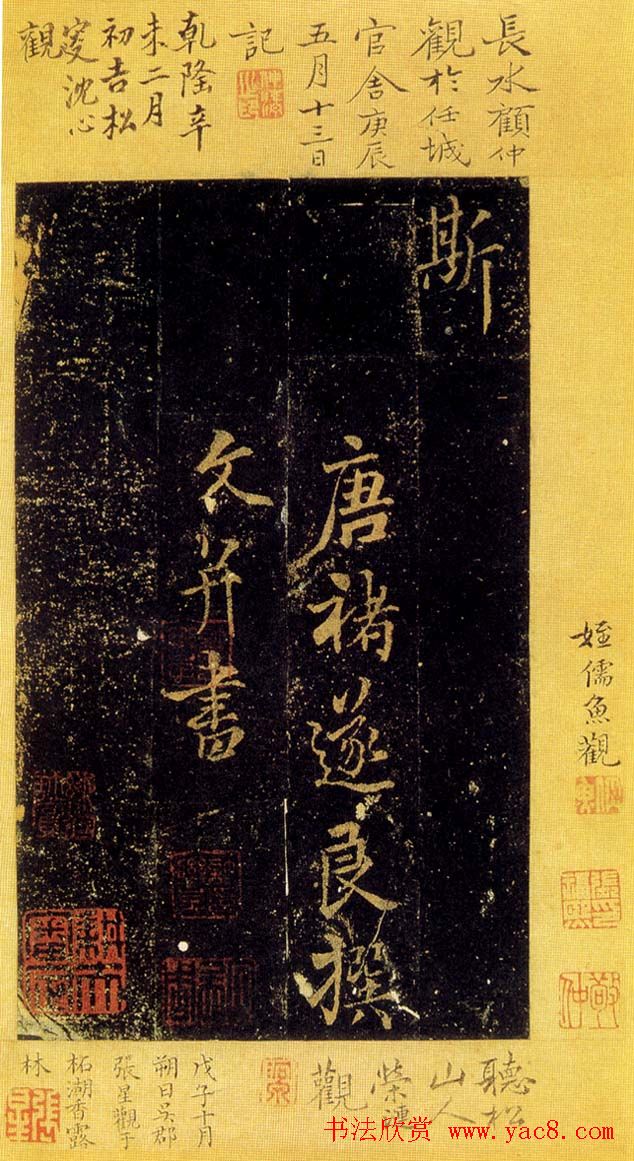 長水顧仲
觀於任城
官舍庚辰
五月十三日
記
乾隆辛
未二月
初吉松
沈心
觀
斯
唐褚遂良撰
文并書
姪儒魚觀
聽松
山人
觀
戊子十月
朔日吳郡
張星觀于
柘湖香露
林
书法欣赏 www.yac8.com